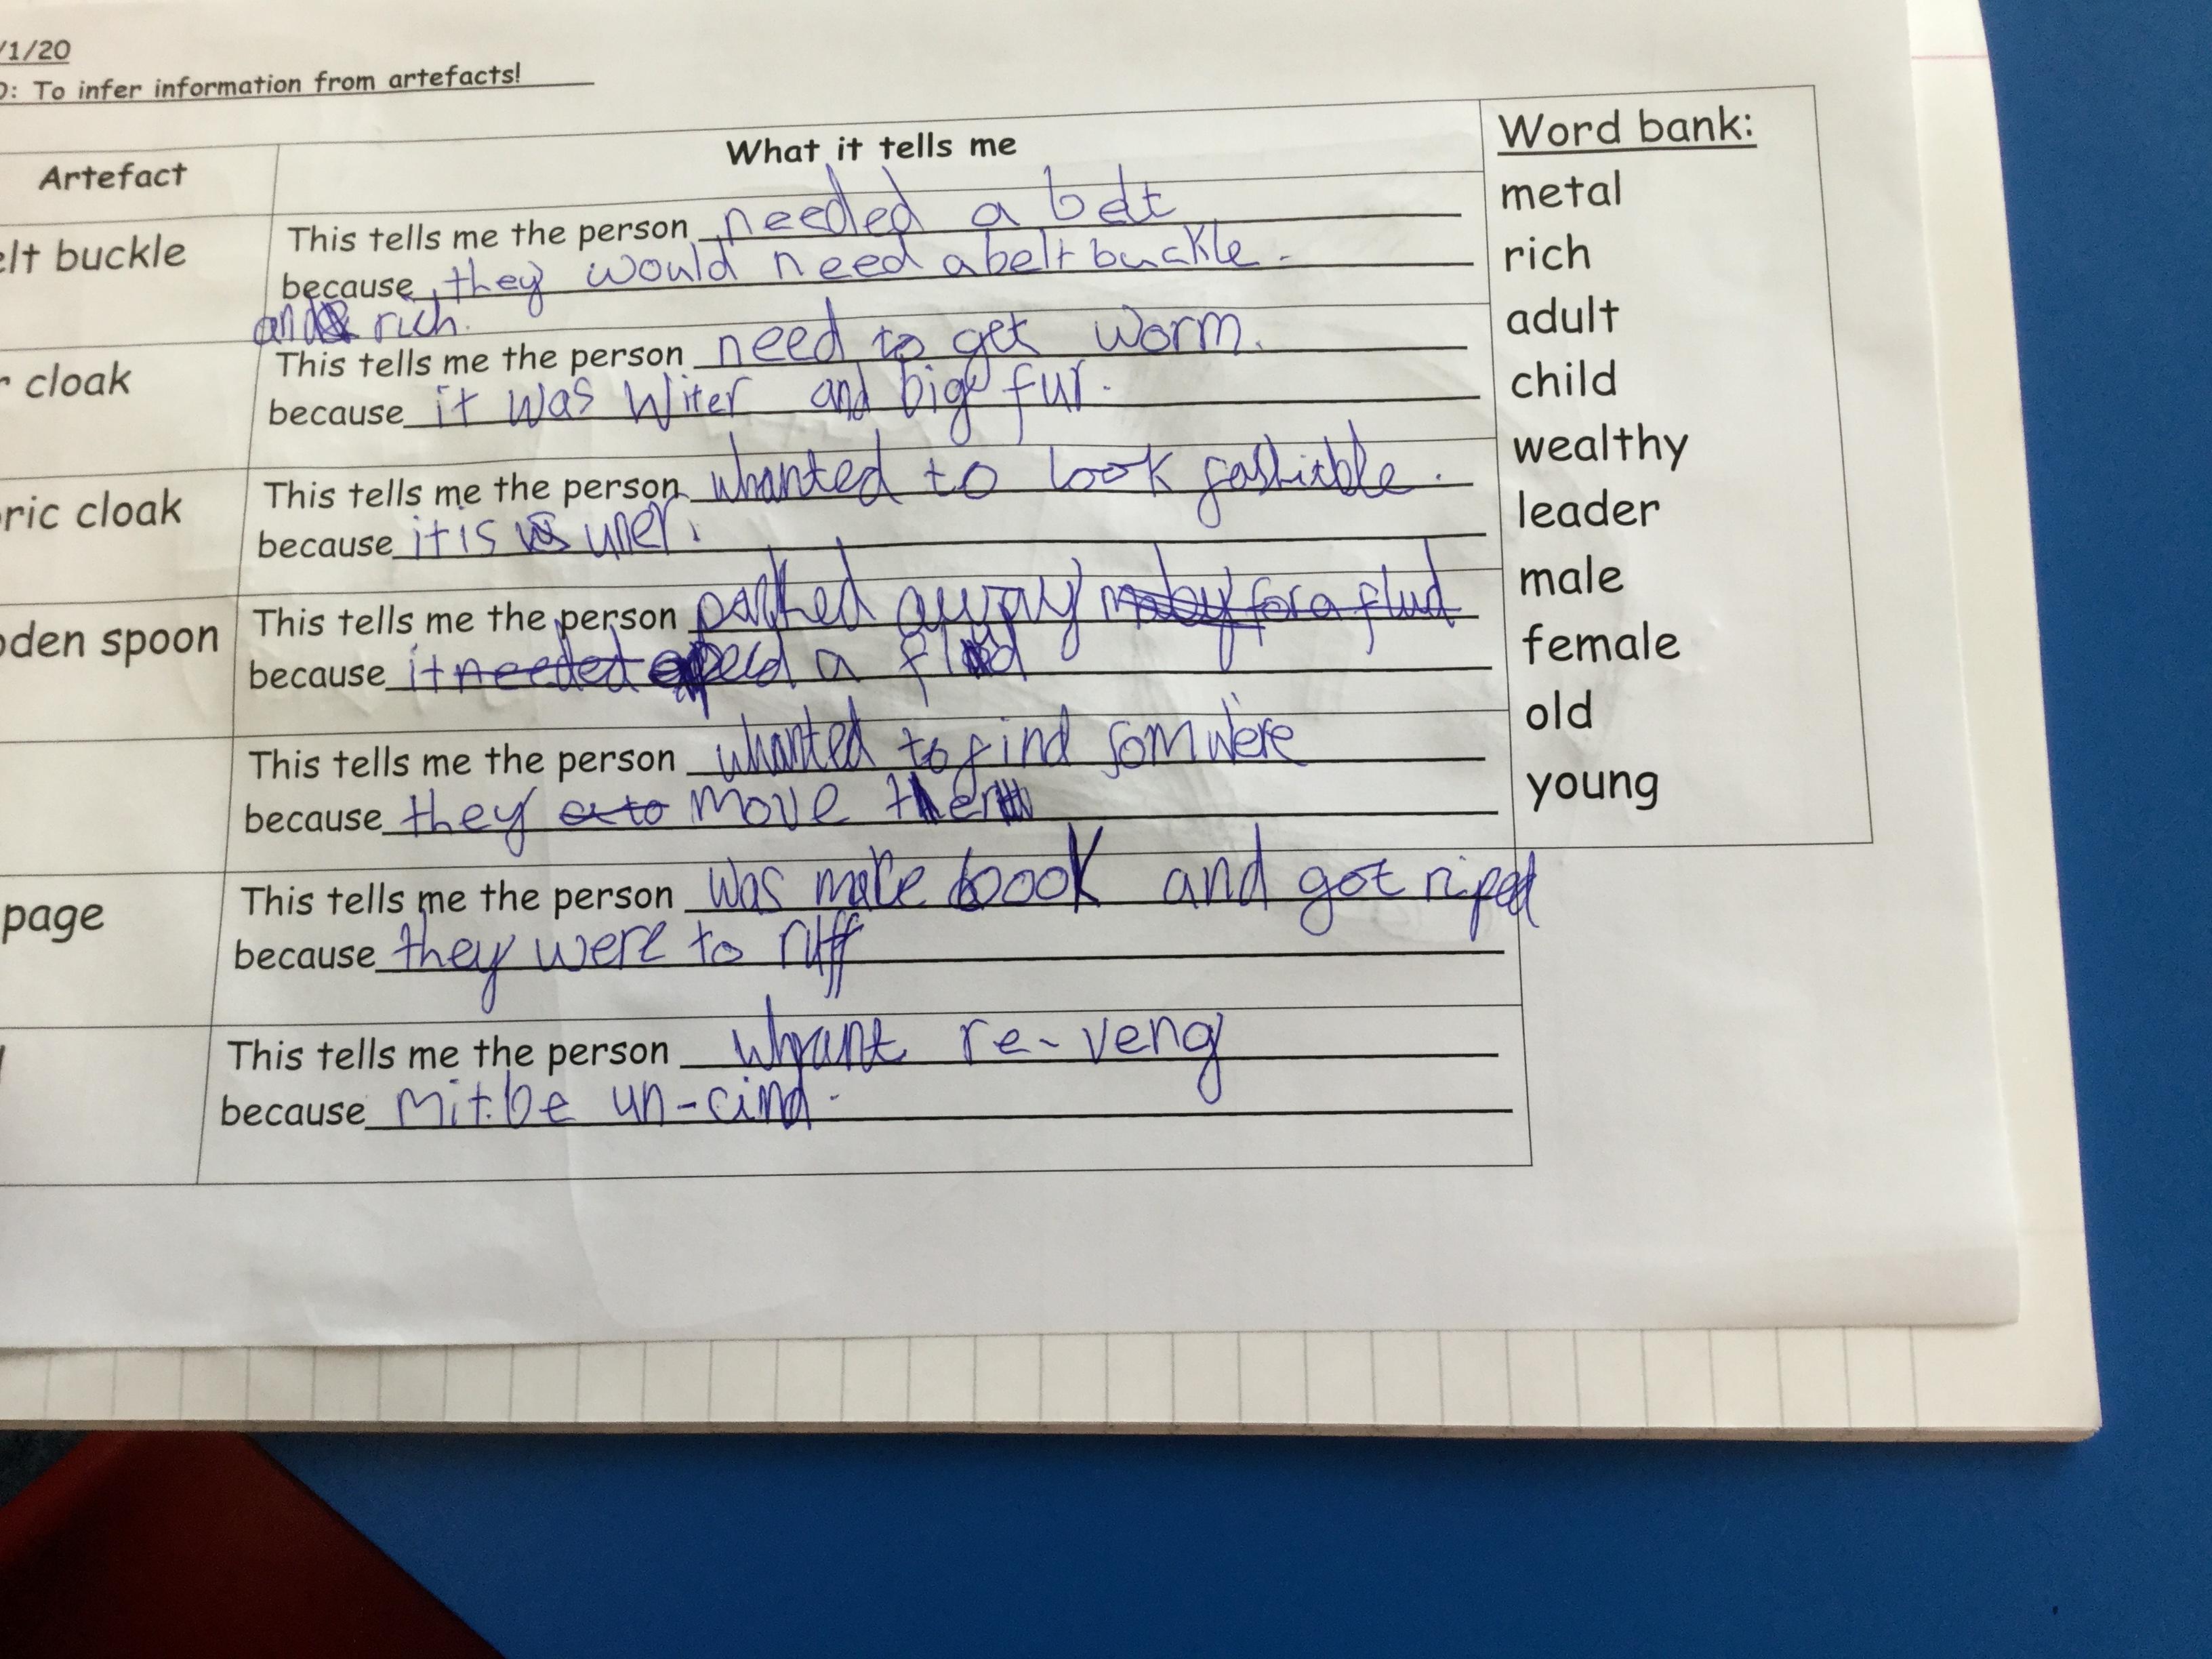 /1/20
O: To infer information from artefacts!
Artefact
What it tells me
Word bank:
metal
rich
adult
child
wealthy
leader
male
female
old
young
elt buckle
This tells me the person needed a belt
because they would need a belt buckle.
and rich.
r cloak
This tells me the person need to get worm.
because it was Witer and big fur.
ric cloak
This tells me the person whanted to look
because it is
oden spoon
This tells me the person away maby for a flud
because it needed a
This tells me the person whanted to find somwere
because they move
page
This tells me the person was make book and got riped
because they were to ruff
This tells me the person whant re-veng
because mit be un-cind.